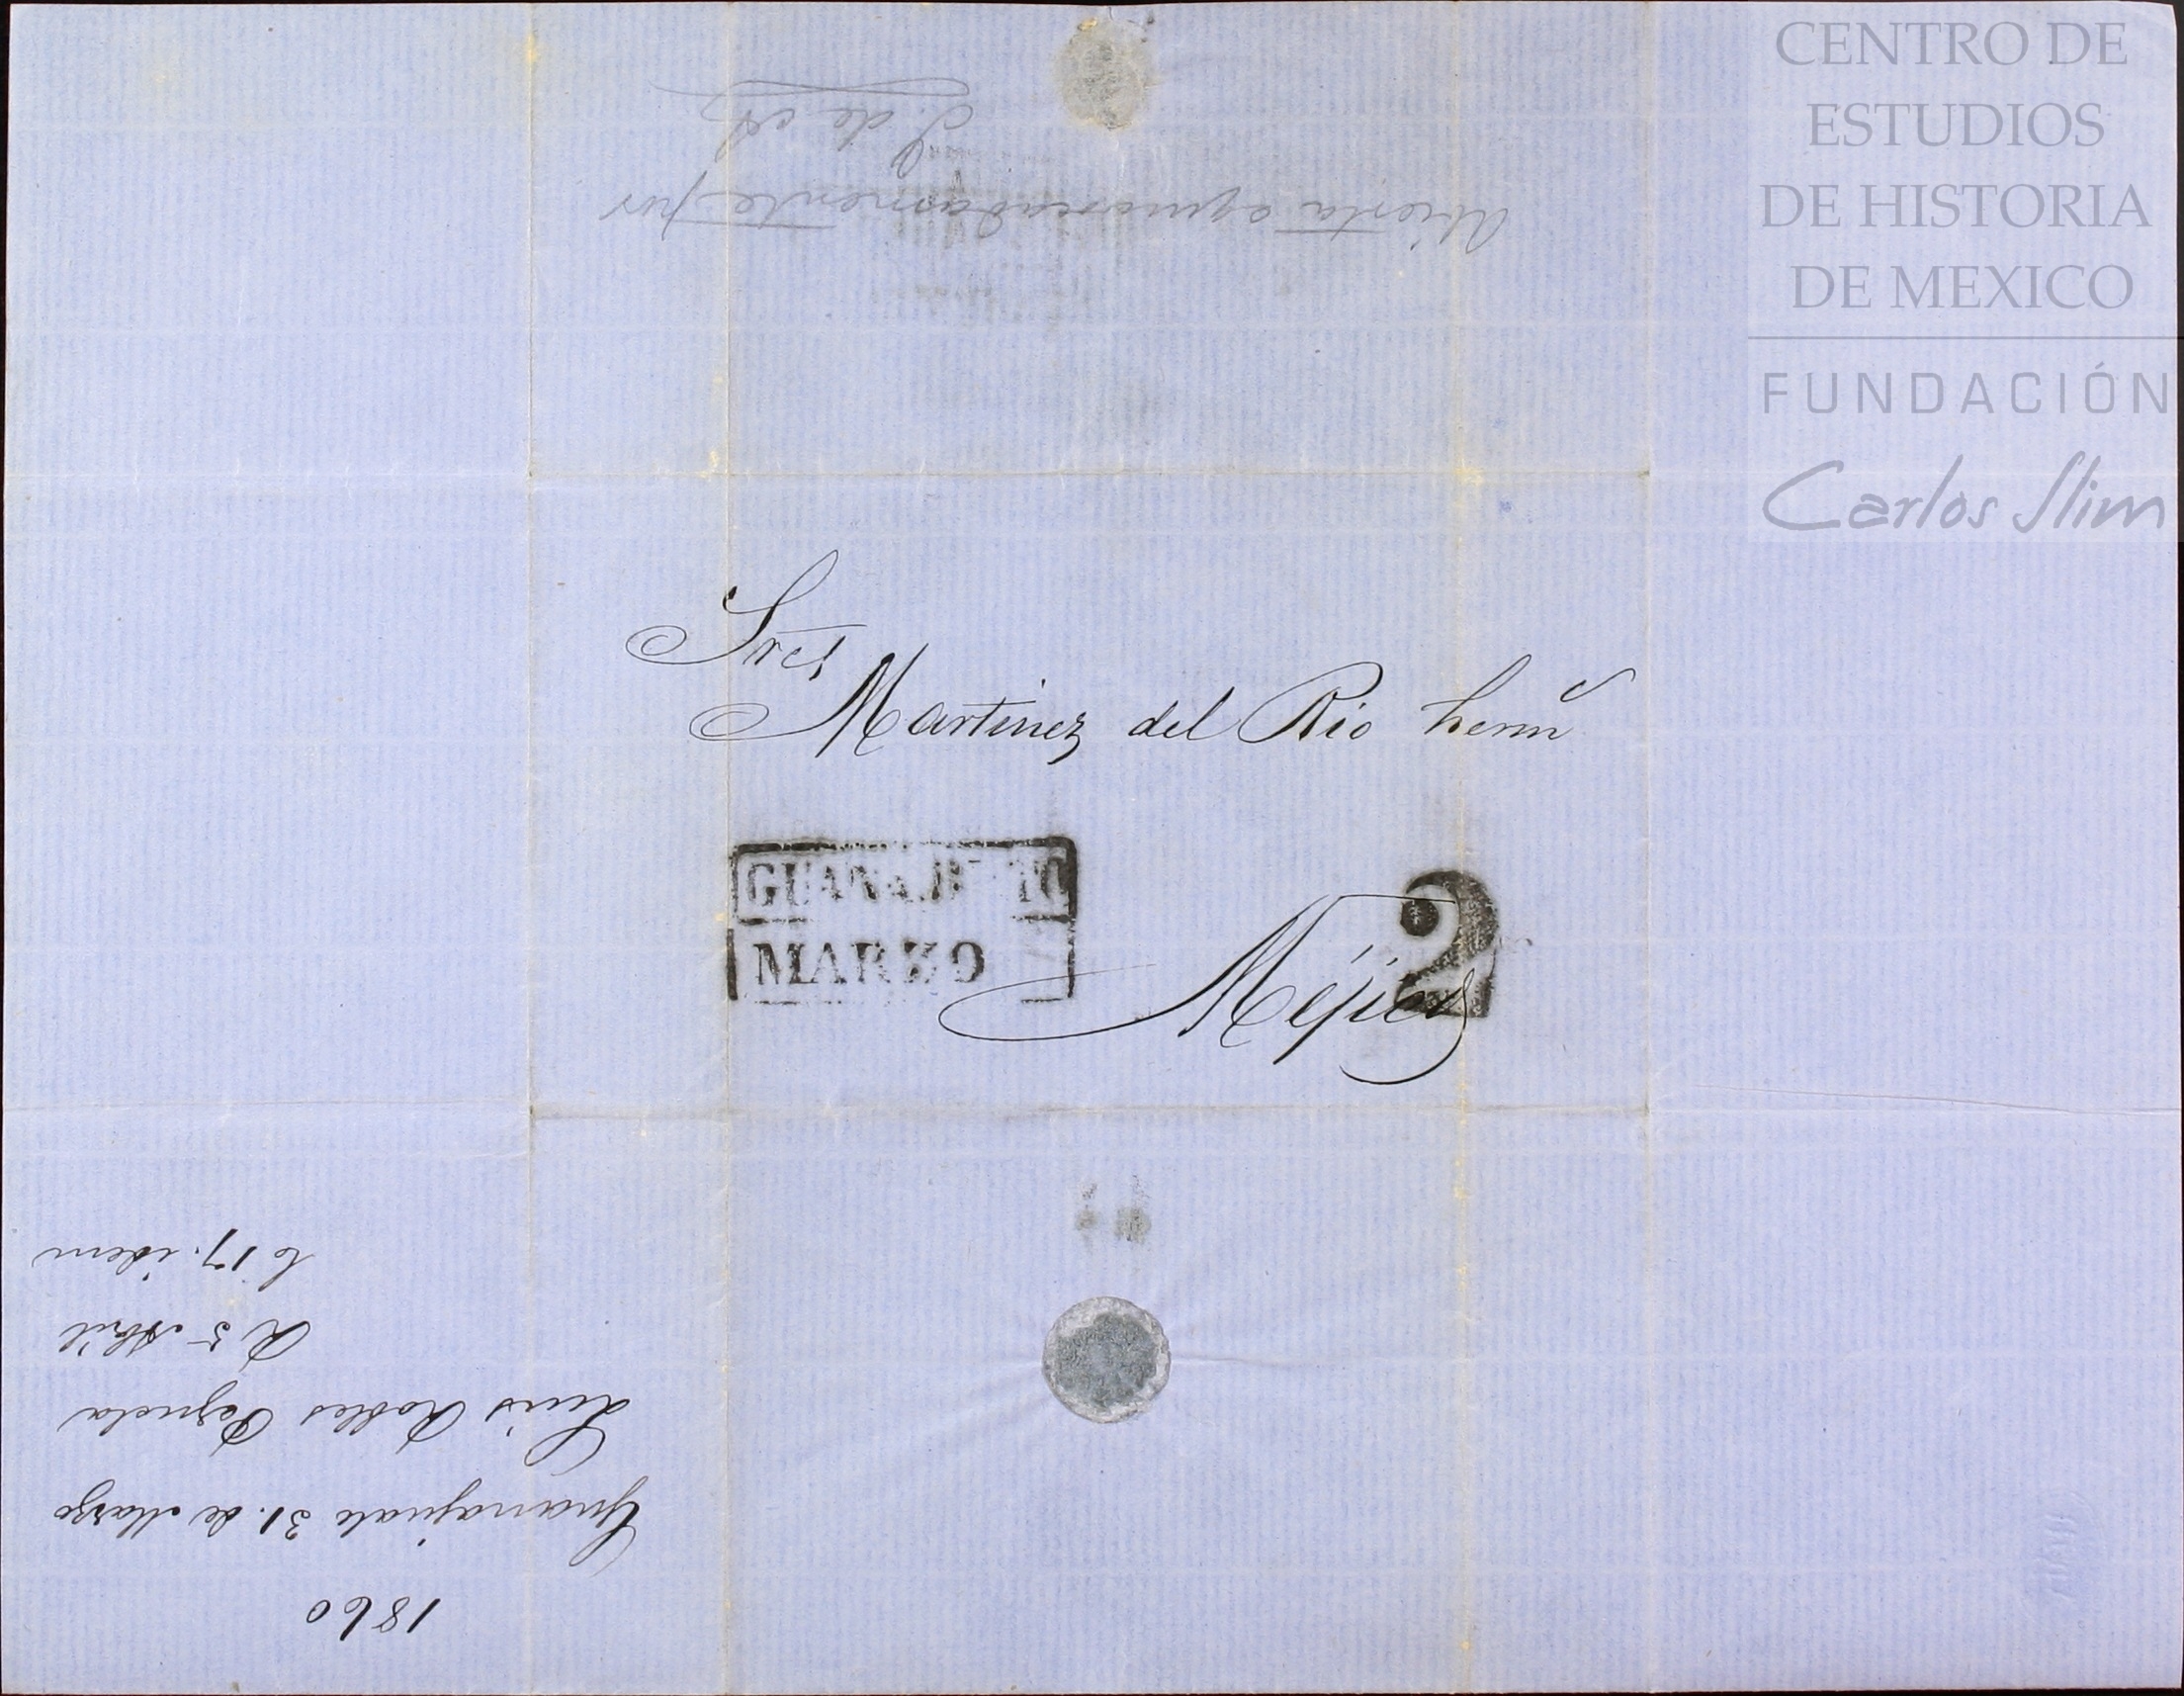 CENTRO DE
ESTUDIOS
DE HISTORIA
DE MEXICO
FUNDACIÓN
Carlos Slim
Abierta equivocadamente por
J. de A.
Sres
Martinez del Rio herm^s
GUANAJUATO
MARZO
2
Méjico
1860
Guanajuato 31. de Marzo
Luis Robles Pezuela
R 5 Abril
C 17. idem